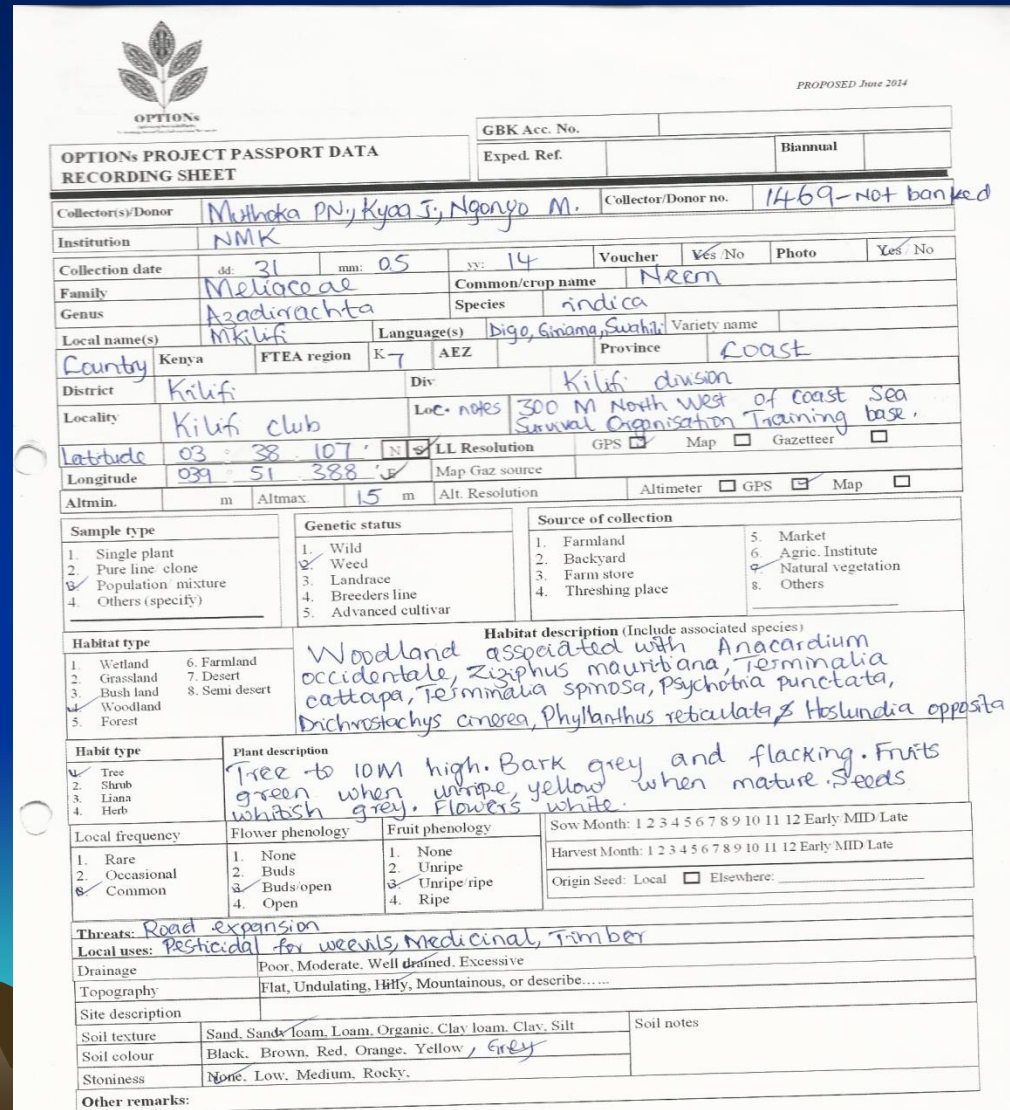 PROPOSED June 2014
OPTIONs
GBK Acc. No.
OPTIONs PROJECT PASSPORT DATA
RECORDING SHEET
Exped. Ref. Biannual
Collector(s)/Donor Muthoka PN., Kyaa J., Ngonyo M. Collector/Donor no. 1469-Not banked
Institution NMK
Collection date dd: 31 mm: 05 yy: 14 Voucher Yes/No Photo Yes/No
Family Meliaceae Common/crop name Neem
Genus Azadirachta Species indica
Local name(s) Mkilifi Language(s) Digo, Giriama, Swahili Variety name
Country Kenya FTEA region K-7 AEZ Province COAST
District Kilifi Div Kilifi division
Locality Kilifi club Loc. notes 300 M North West of Coast Sea
Survival Organisation Training base.
Latitude 03 38 107' N S LL Resolution GPS Map Gazetteer
Longitude 039 51 388' E Map Gaz source
Altmin. m Altmax. 15 m Alt. Resolution Altimeter GPS Map
Sample type
1. Single plant
2. Pure line/ clone
3. Population/ mixture
4. Others (specify)
Genetic status
1. Wild
2. Weed
3. Landrace
4. Breeders line
5. Advanced cultivar
Source of collection
1. Farmland
2. Backyard
3. Farm store
4. Threshing place
5. Market
6. Agric. Institute
7. Natural vegetation
8. Others
Habitat type
1. Wetland 6. Farmland
2. Grassland 7. Desert
3. Bush land 8. Semi desert
4. Woodland
5. Forest
Habitat description (Include associated species)
Woodland associated with Anacardium
occidentale, Ziziphus mauritiana, Terminalia
cattapa, Terminalia spinosa, Psychotria punctata,
Dichrostachys cinerea, Phyllanthus reticulata & Hoslundia opposita
Habit type
1. Tree
2. Shrub
3. Liana
4. Herb
Plant description
Tree to 10M high. Bark grey and flacking. Fruits
green when unripe, yellow when mature. Seeds
whitish grey. Flowers white.
Local frequency
1. Rare
2. Occasional
3. Common
Flower phenology
1. None
2. Buds
3. Buds/open
4. Open
Fruit phenology
1. None
2. Unripe
3. Unripe/ripe
4. Ripe
Sow Month: 1 2 3 4 5 6 7 8 9 10 11 12 Early/MID/Late
Harvest Month: 1 2 3 4 5 6 7 8 9 10 11 12 Early/MID/Late
Origin Seed: Local Elsewhere:
Threats: Road expansion
Local uses: Pesticidal for weevils, Medicinal, Timber
Drainage Poor, Moderate, Well drained, Excessive
Topography Flat, Undulating, Hilly, Mountainous, or describe......
Site description
Soil texture Sand, Sandy loam, Loam, Organic, Clay loam, Clay, Silt Soil notes
Soil colour Black, Brown, Red, Orange, Yellow, Grey
Stoniness None, Low, Medium, Rocky,
Other remarks: